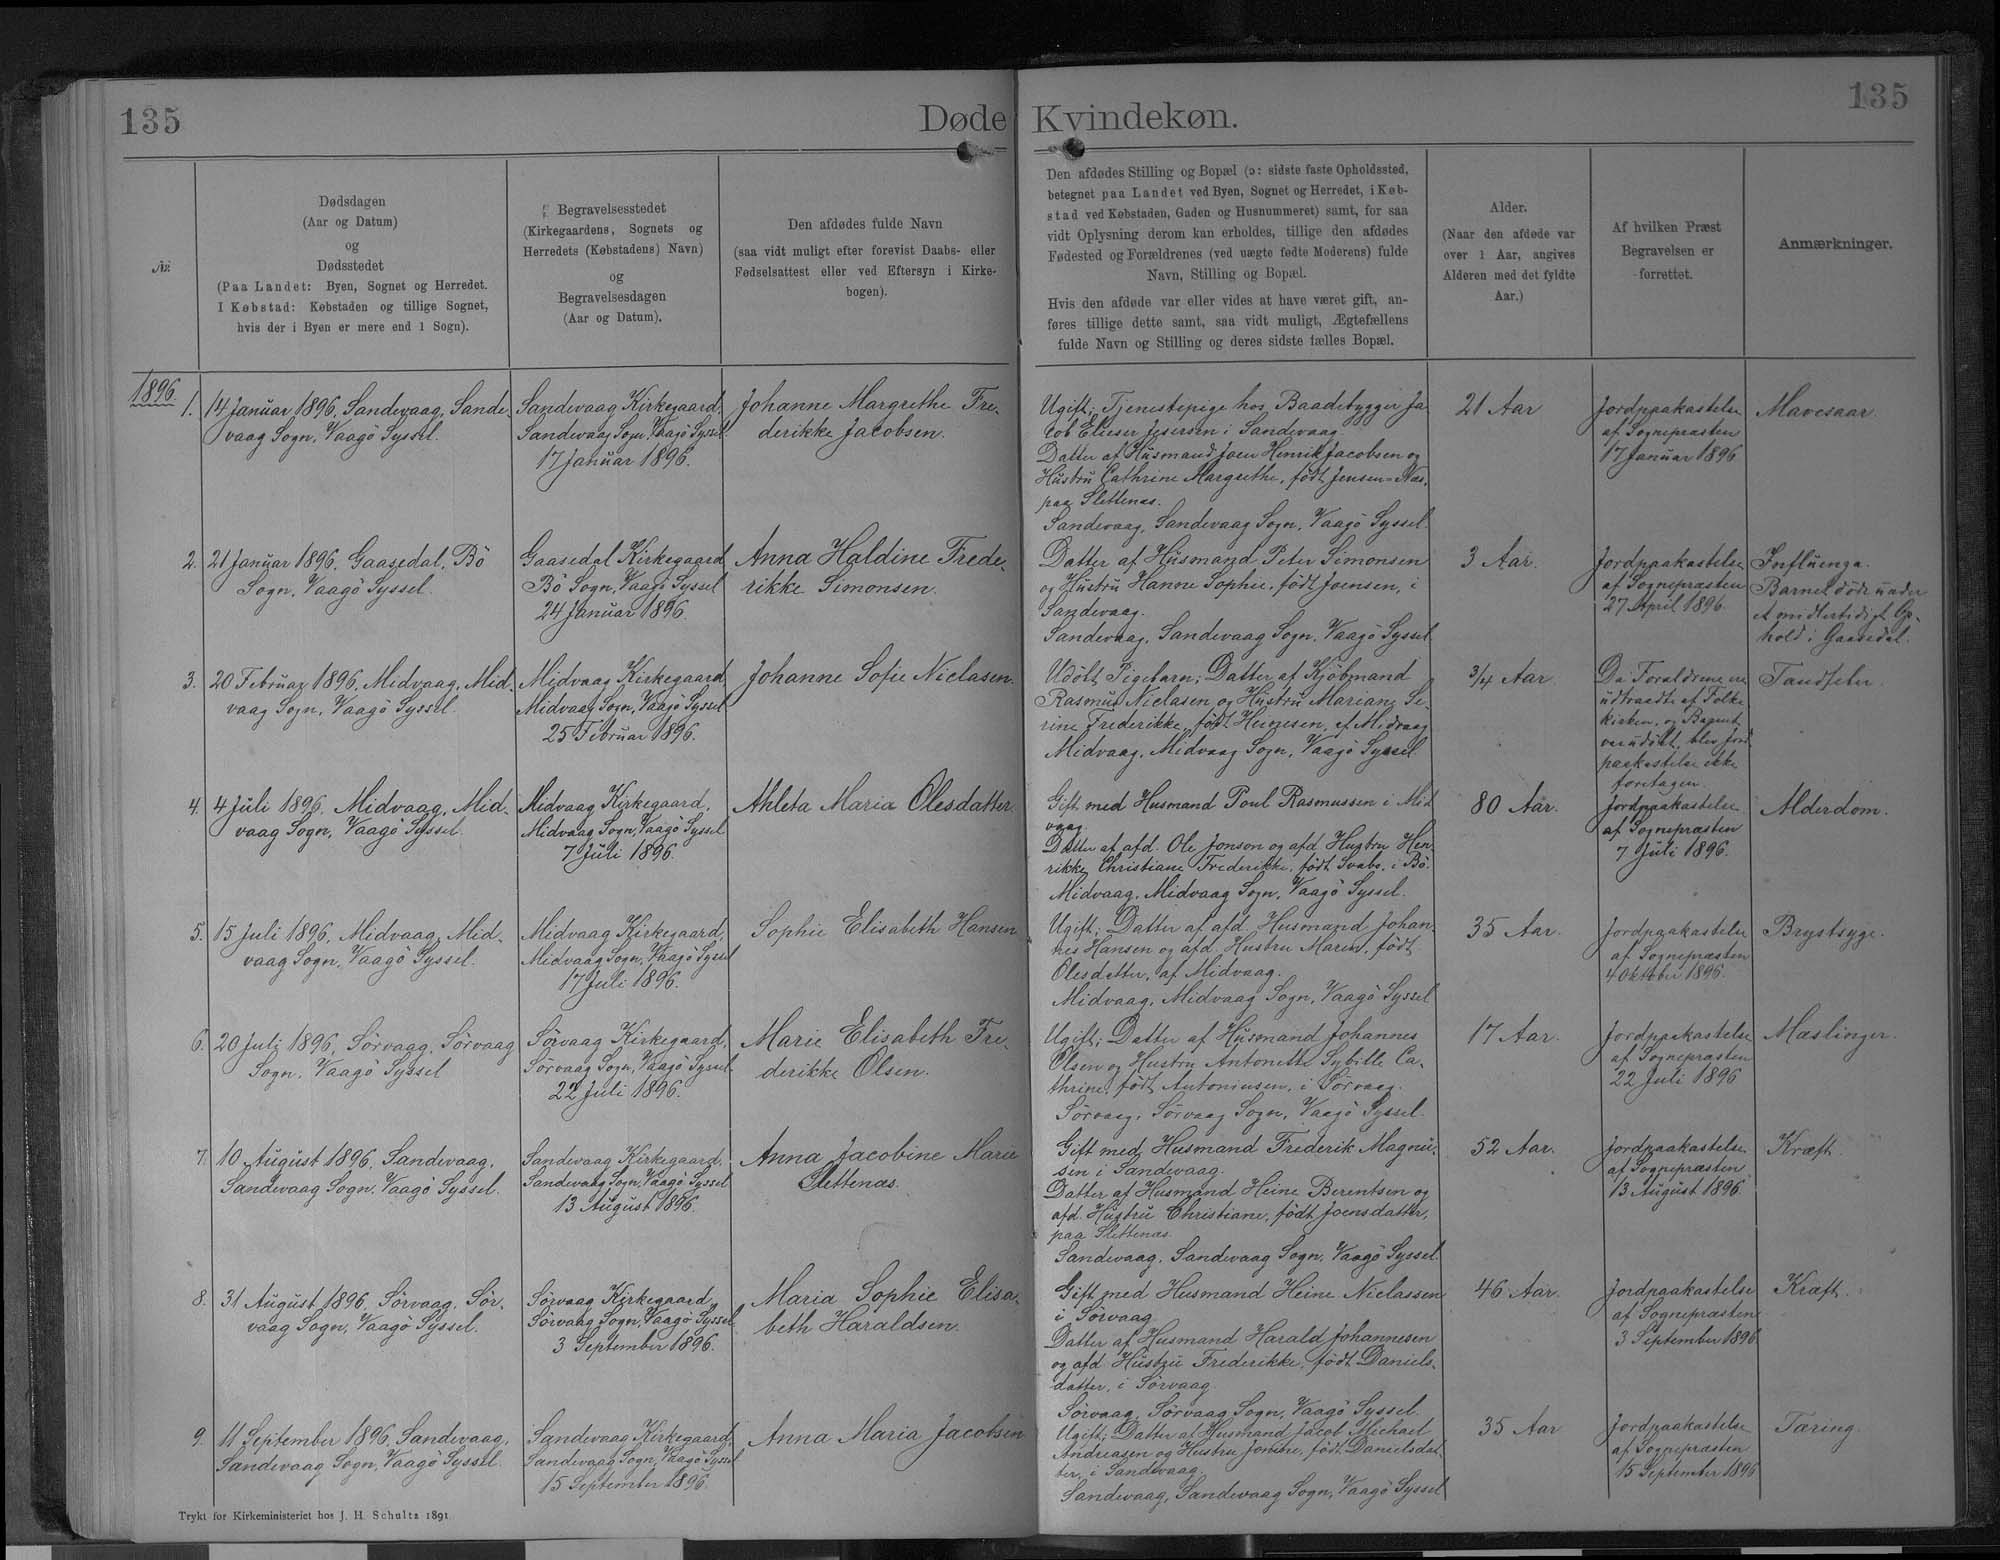 135
Døde Kvindekøn.
135
№.
Dødsdagen
(Aar og Datum)
og
Dødsstedet
(Paa Landet: Byen, Sognet og Herredet.
I Købstad: Købstaden og tillige Sognet,
hvis der i Byen er mere end 1 Sogn).
Begravelsesstedet
(Kirkegaardens, Sognets og
Herredets (Købstadens) Navn)
og
Begravelsesdagen
(Aar og Datum).
Den afdødes fulde Navn
(saa vidt muligt efter forevist Daabs- eller
Fødselsattest eller ved Eftersyn i Kirke-
bogen).
Den afdødes Stilling og Bopæl (ɔ: sidste faste Opholdssted,
betegnet paa Landet ved Byen, Sognet og Herredet, i Køb-
stad ved Købstaden, Gaden og Husnummeret) samt, for saa
vidt Oplysning derom kan erholdes, tillige den afdødes
Fødested og Forældrenes (ved uægte fødte Moderens) fulde
Navn, Stilling og Bopæl.
Hvis den afdøde var eller vides at have været gift, an-
føres tillige dette samt, saa vidt muligt, Ægtefællens
fulde Navn og Stilling og deres sidste fælles Bopæl.
Alder.
(Naar den afdøde var
over 1 Aar, angives
Alderen med det fyldte
Aar.)
Af hvilken Præst
Begravelsen er
forrettet.
Anmærkninger.
1896.
1.
14 Januar 1896. Sandevaag, Sande-
vaag Sogn, Vaagö Syssel.
Sandevaag Kirkegaard,
Sandevaag Sogn, Vaagö Syssel.
17 Januar 1896.
Johanne Margrethe Fre-
derikke Jacobsen.
Ugift; Tjenestepige hos Baadebygger Ja
cob Elieser Jesersen i Sandevaag
Datter af Husmand Joen Henrik Jacobsen og
Hustru Cathrine Margrethe, født Jensen=Næs,
paa Slettenæs.
Sandevaag, Sandevaag Sogn, Vaagö Syssel.
21 Aar
Jordpaakastelse
af Sognepræsten
17 Januar 1896
Mavesaar
2.
21 Januar 1896. Gaasedal, Bö
Sogn, Vaagö Syssel.
Gaasedal Kirkegaard
Bö Sogn, Vaagö Syssel
24 Januar 1896.
Anna Haldine Frede-
rikke Simonsen.
Datter af Husmand Peter Simonsen
og Hustru Hanne Sophie, født Joensen, i
Sandevaag.
Sandevaag, Sandevaag Sogn, Vaagö Syssel
3 Aar.
Jordpaakastelse
af Sognepræsten
27 April 1896.
Influenza.
Barnet døde under
et midlertidigt Op-
hold i Gaasedal.
3.
20 Februar 1896. Midvaag, Mid-
vaag Sogn, Vaagö Syssel.
Midvaag Kirkegaard
Midvaag Sogn, Vaagö Syssel
25 Februar 1896.
Johanne Sofie Niclasen.
Udöbt Pigebarn; Datter af Kjöbmand
Rasmus Niclasen og Hustru Mariane Se-
rine Frederikke, født Heinesen, af Midvaag
Midvaag, Midvaag Sogn, Vaagö Syssel
3/4 Aar
Da Forældrene ere
udtraadte af Folke
kirken, og Barnet
var udöbt, blev Jord
paakastelse ikke
foretagen.
Tandfeber.
4.
4 Juli 1896. Midvaag, Mid-
vaag Sogn, Vaagö Syssel.
Midvaag Kirkegaard,
Midvaag Sogn, Vaagö Syssel
7 Juli 1896.
Athleta Maria Olesdatter
Gift med Husmand Poul Rasmussen i Mid
vaag.
Datter af afd. Ole Jonson og afd. Hustru Hen
rikke Christiane Frederikke, født Svabo, i Bö.
Midvaag, Midvaag Sogn, Vaagö Syssel.
80 Aar.
Jordpaakastelse
af Sognepræsten
7 Juli 1896.
Alderdom.
5.
15 Juli 1896. Midvaag, Mid-
vaag Sogn, Vaagö Syssel.
Midvaag Kirkegaard,
Midvaag Sogn, Vaagö Syssel
17 Juli 1896.
Sophie Elisabeth Hansen
Ugift; Datter af afd. Husmand Johan-
nes Hansen og afd. Hustru Maren, født
Olesdatter, af Midvaag.
Midvaag, Midvaag Sogn, Vaagö Syssel
35 Aar.
Jordpaakastelse
af Sognepræsten
4 Oktober 1896.
Brystsyge.
6.
20 Juli 1896, Sörvaag, Sörvaag
Sogn, Vaagö Syssel
Sörvaag Kirkegaard,
Sörvaag Sogn, Vaagö Syssel.
22 Juli 1896.
Marie Elisabeth Fre-
derikke Olsen.
Ugift; Datter af Husmand Johannes
Olsen og Hustru Antonette Sybille Ca-
thrine, født Antoniusen, i Sörvaag.
Sörvaag, Sörvaag Sogn, Vaagö Syssel.
17 Aar.
Jordpaakastelse
af Sognepræsten
22 Juli 1896
Mæslinger.
7.
10 August 1896. Sandevaag,
Sandevaag Sogn, Vaagö Syssel.
Sandevaag Kirkegaard,
Sandevaag Sogn, Vaagö Syssel
13 August 1896.
Anna Jacobine Marie
Slettenæs.
Gift med Husmand Frederik Magnu-
sen i Sandevaag.
Datter af Husmand Heine Berentsen og
afd. Hustru Christiane, født Joensdatter,
paa Slettenæs.
Sandevaag, Sandevaag Sogn, Vaagö Syssel.
52 Aar.
Jordpaakastelse
af Sognepræsten
13 August 1896.
Kræft.
8.
31 August 1896. Sörvaag, Sör-
vaag Sogn, Vaagö Syssel.
Sörvaag Kirkegaard,
Sörvaag Sogn, Vaagö Syssel
3 September 1896.
Maria Sophie Elisa-
beth Haraldsen.
Gift med Husmand Heine Niclassen
i Sörvaag
Datter af Husmand Harald Johannesen
og afd Hustru Frederikke, født Daniels-
datter, i Sörvaag.
Sörvaag, Sörvaag Sogn, Vaagö Syssel.
46 Aar.
Jordpaakastelse
af Sognepræsten
3 September 1896
Kræft.
9.
11 September 1896. Sandevaag,
Sandevaag Sogn, Vaagö Syssel.
Sandevaag Kirkegaard,
Sandevaag Sogn, Vaagö Syssel
15 September 1896.
Anna Maria Jacobsen
Ugift; Datter af Husmand Jacob Michael
Andreasen og Hustru Jonine, født Danielsdat
ter, i Sandevaag.
Sandevaag, Sandevaag Sogn, Vaagö Syssel
35 Aar
Jordpaakastelse
af Sognepræsten
15 September 1896
Tæring.
Trykt for Kirkeministeriet hos J. H. Schultz 1891